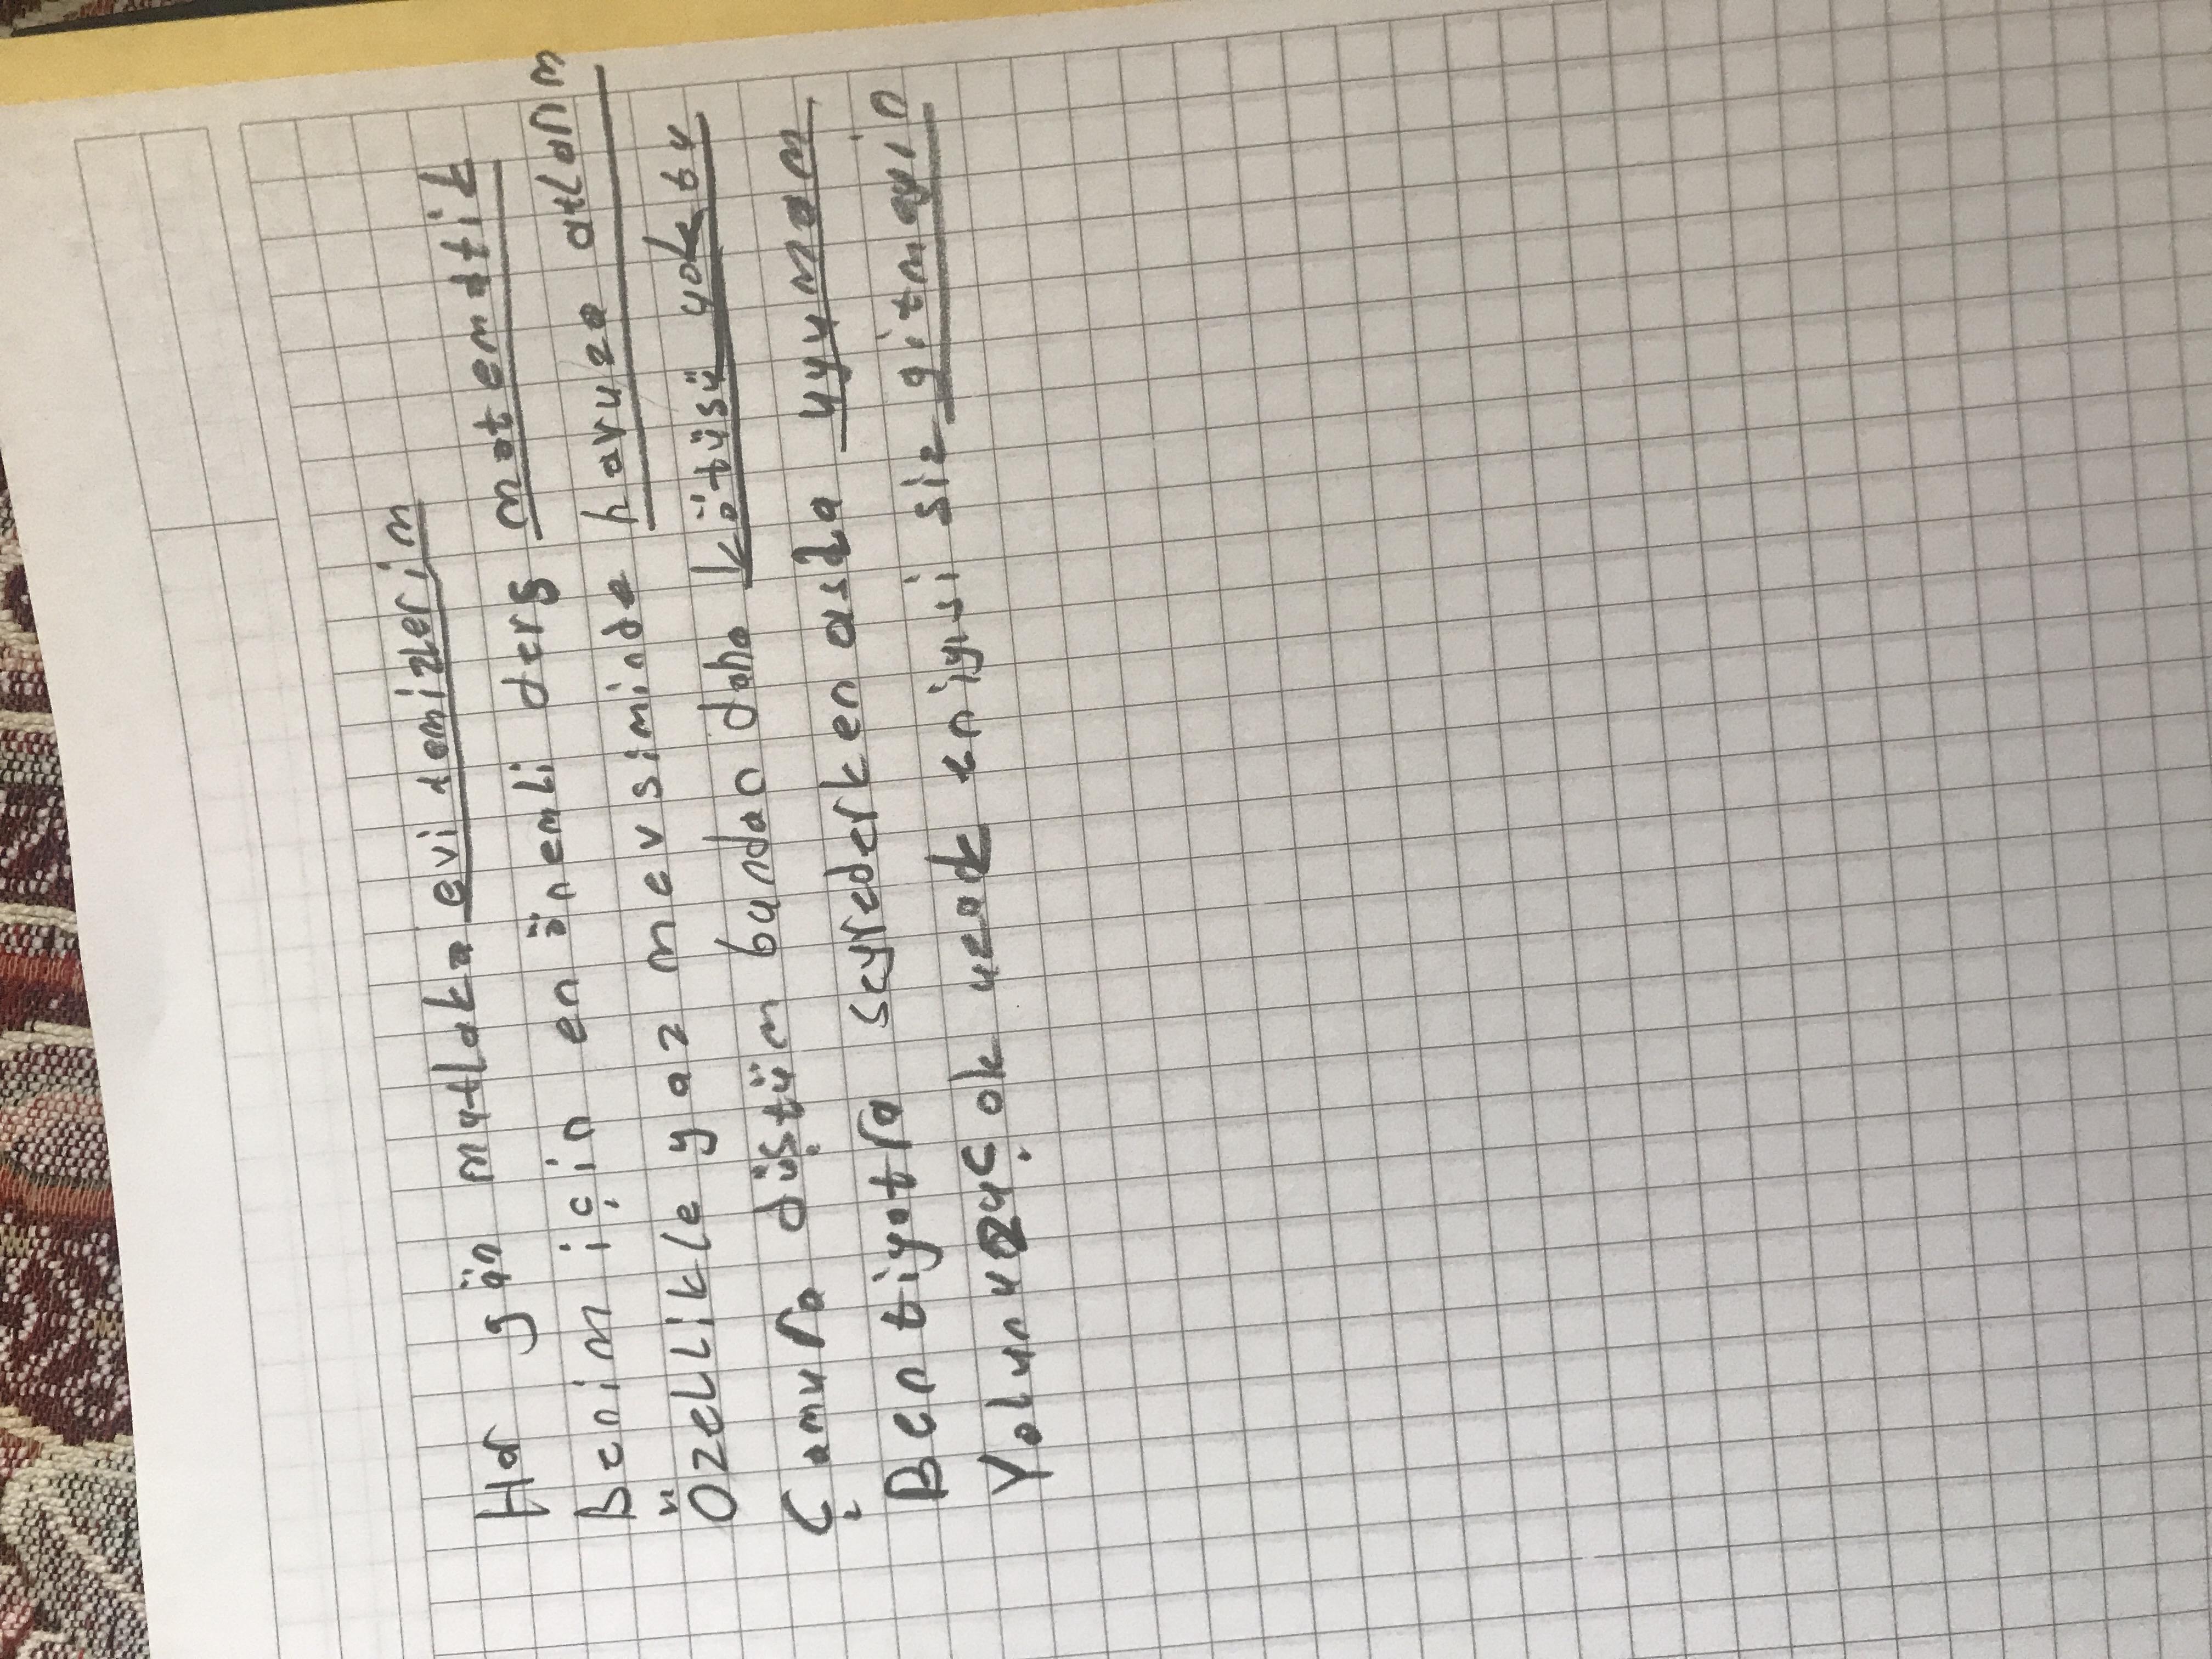 Her gün mutlaka evi temizlerim
Benim için en önemli ders matematik
Özellikle yaz mevsiminde havuza atlarım
Çamura düştüm bundan daha kötüsü yoktu
Ben tiyatra seyrederken asla uyumam
Yolunuz çok uzak en iyisi siz gitmeyin